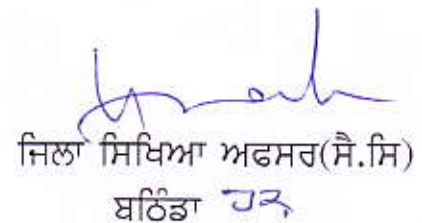 ਜਿਲਾ ਸਿਖਿਆ ਅਫਸਰ(ਸੈ.ਸਿ)
ਬਠਿੰਡਾ